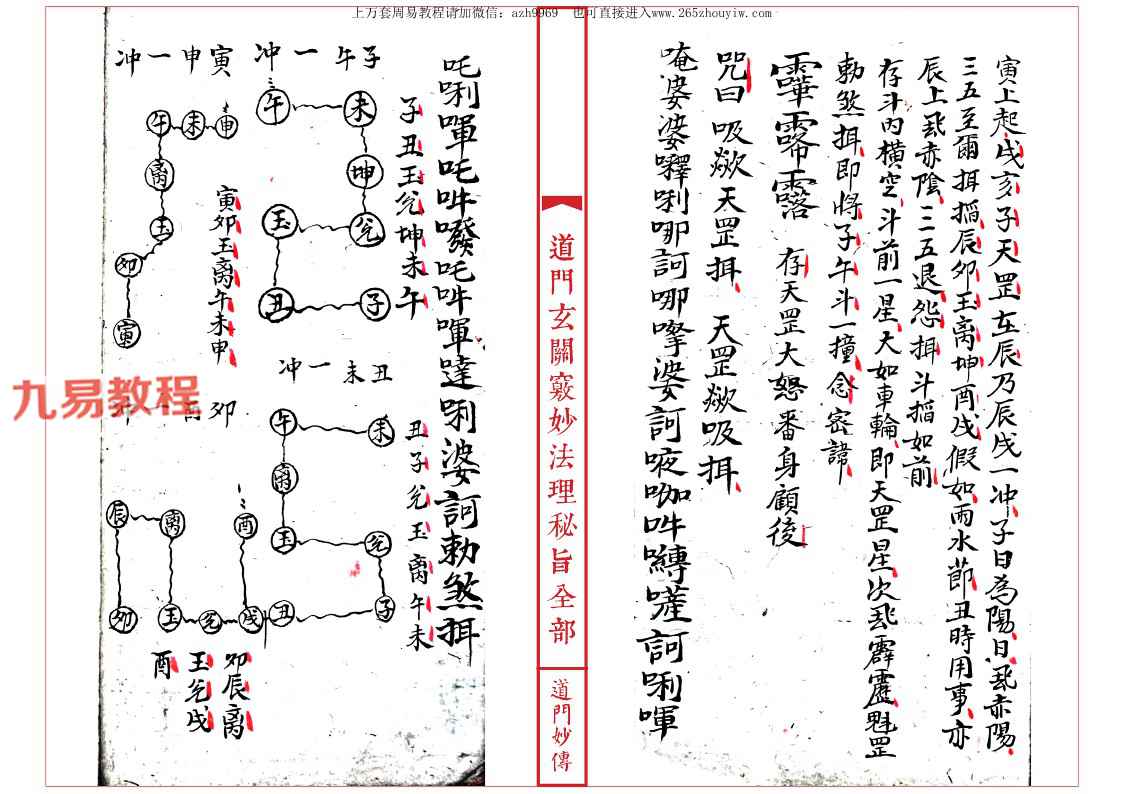 上万套周易教程请加微信：azh9969 也可直接进入www.265zhouyiw.com
寅上起戌亥子天罡在辰乃辰戌一冲子日為陽日炁亦陽
三五至爾揖搯辰卯玉离坤酉戌假如雨水節丑時用事亦
辰上炁亦陰三五退怨揖斗搯如前
存斗內橫空斗前一星大如車輪即天罡星次炁霹靂魁罡
勅煞揖即將子午斗一撞念密諱
存天罡大怒番身顧後
咒曰吸歘天罡揖天罡歘吸揖
唵婆婆嚩唎哪訶哪嚓婆訶
訶唎嗶
道門玄關竅妙法理秘旨全部
道門妙傳
吒唎嗶吒吽嚩吒吽嗶達唎婆訶勅煞揖
子午一冲
子丑玉兊坤未午
午
未
坤
玉
兊
丑
子
寅申一冲
午
未
申
离
玉
卯
寅
寅卯玉离午未申
丑未一冲
丑子兊玉离午未
午
未
离
玉
兊
丑
子
卯
辰
离
酉
卯
玉
兊
戌
卯辰离
玉兊戌
酉
九易教程